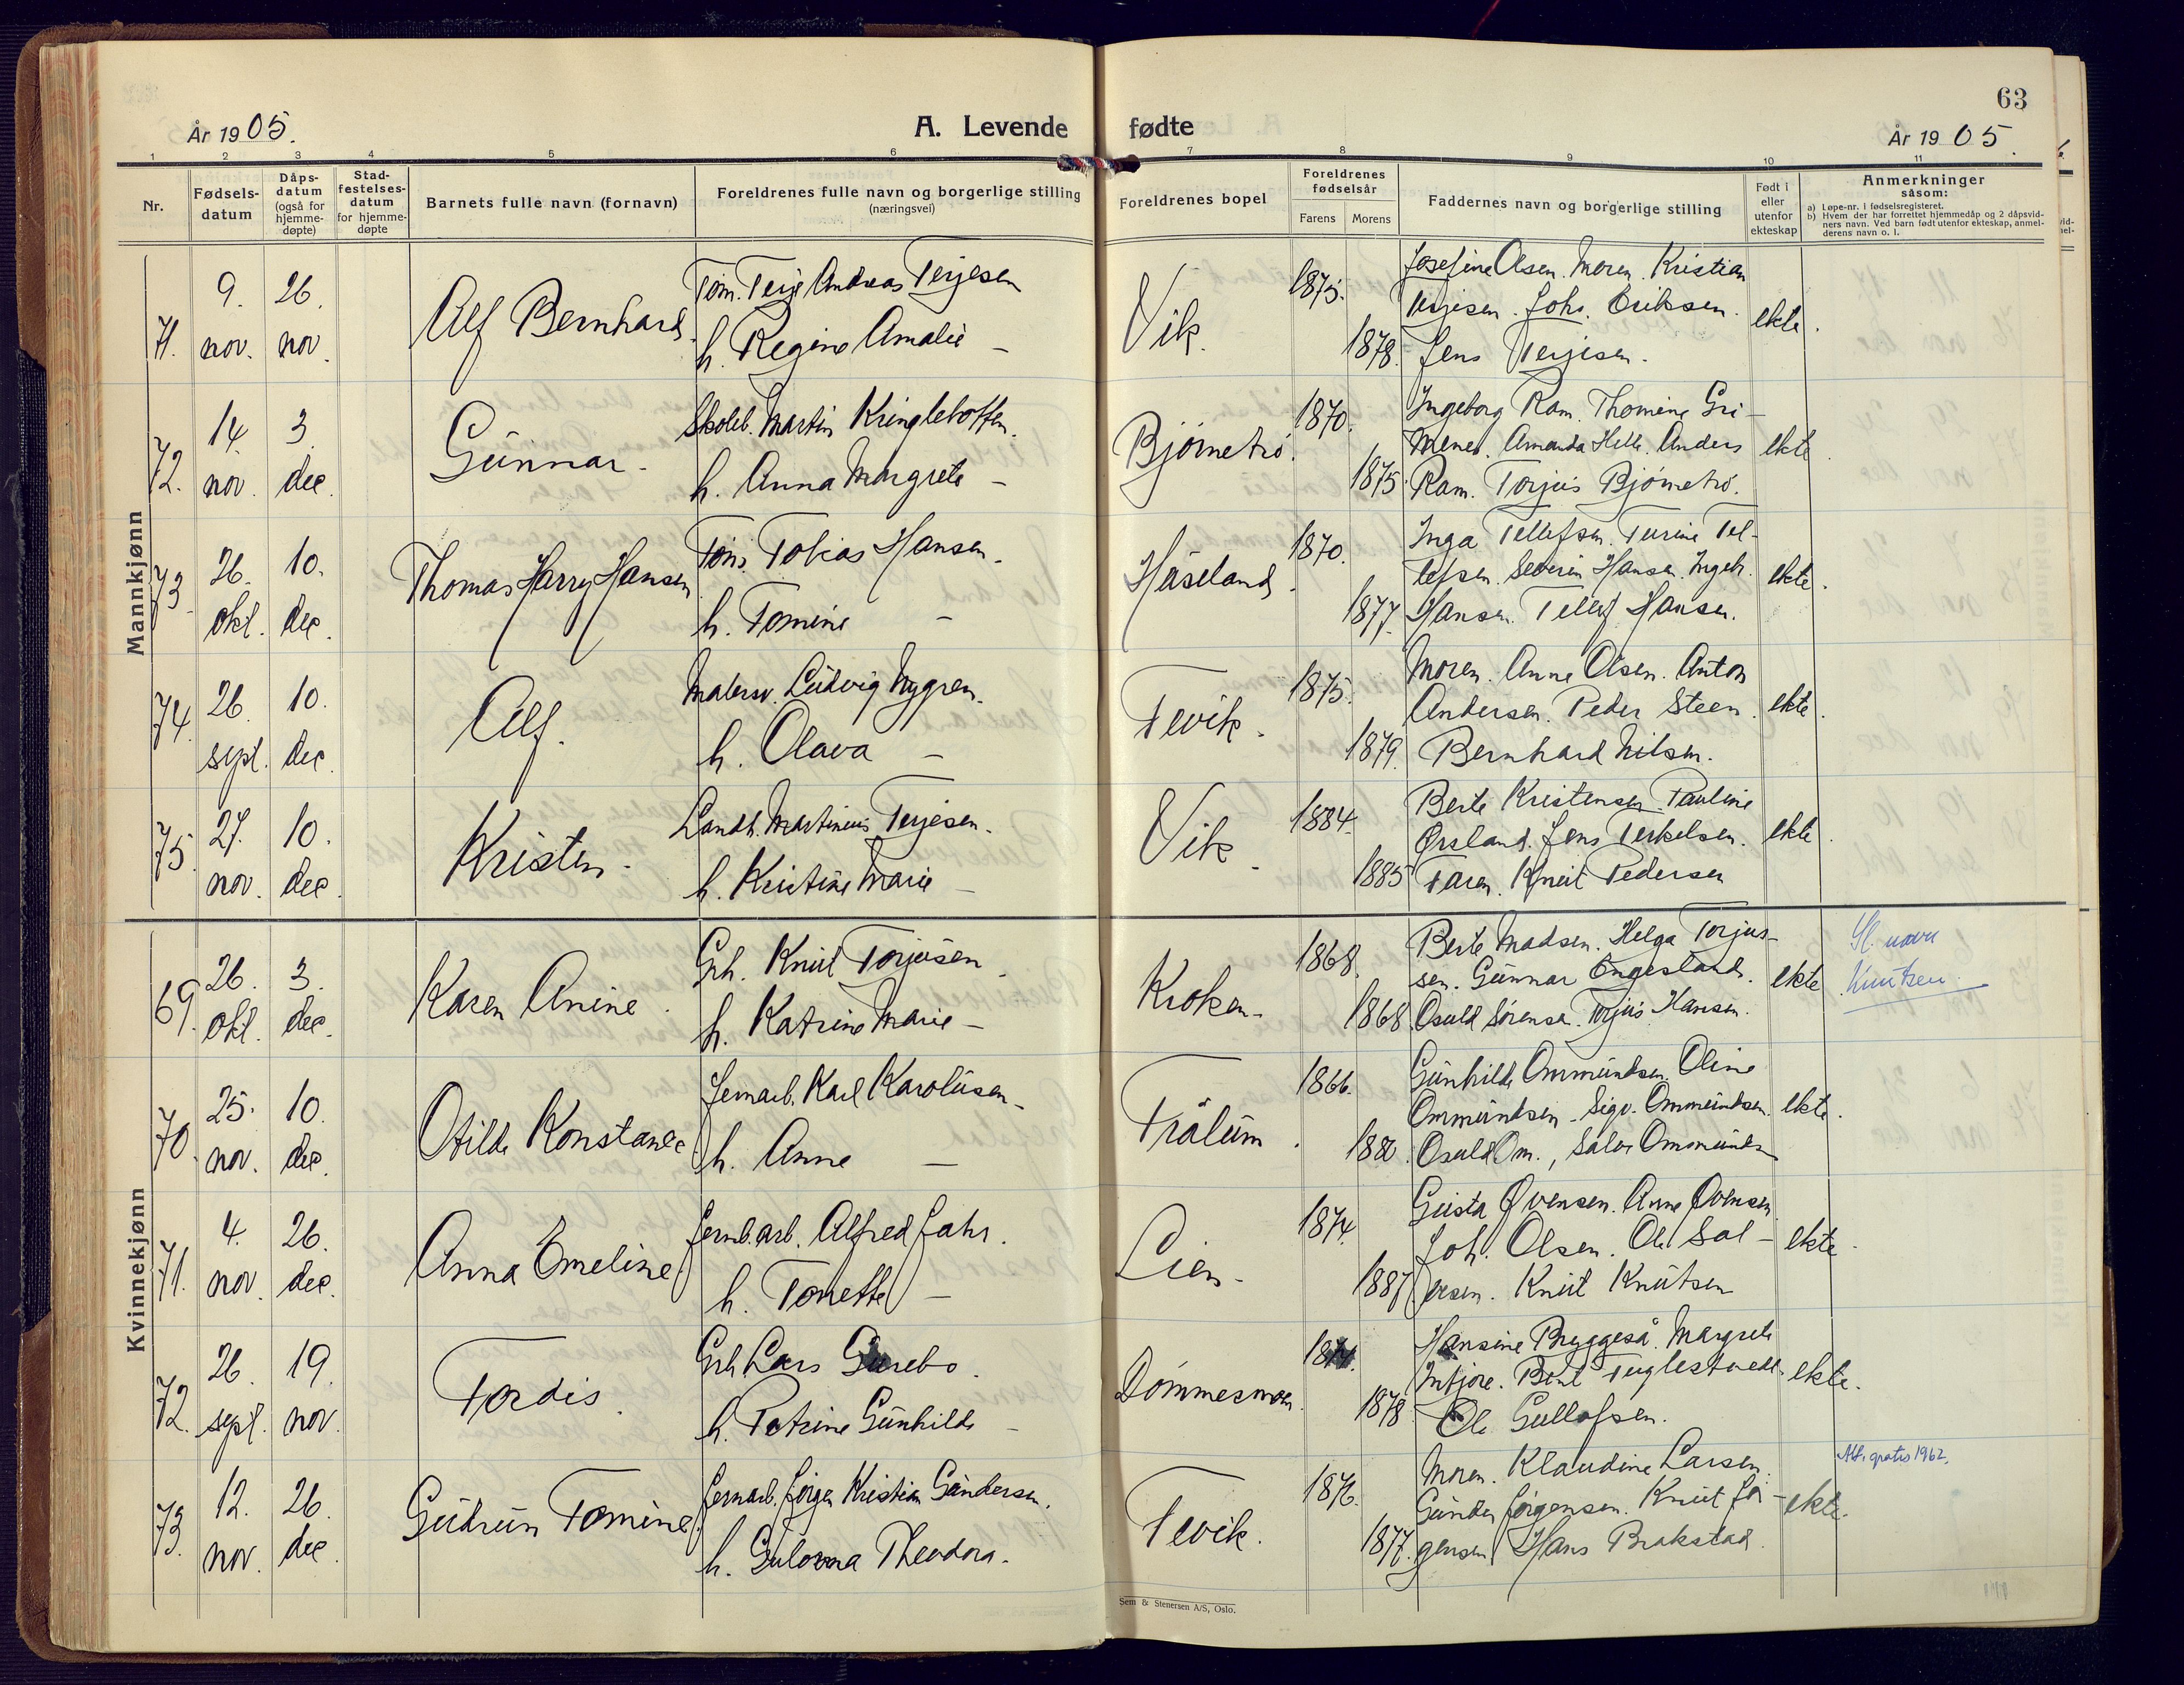 63
År 1905.
A. Levende fødte
År 1905.
1 2 3 4 5 6 7 8 9 10 11
Nr.
Fødsels-
datum
Dåps-
datum
(også for
hjemme-
døpte)
Stad-
festelses-
datum
for hjemme-
døpte
Barnets fulle navn (fornavn)
Foreldrenes fulle navn og borgerlige stilling
(næringsvei)
Foreldrenes bopel
Foreldrenes
fødselsår
Farens Morens
Faddernes navn og borgerlige stilling
Født i
eller
utenfor
ekteskap
Anmerkninger
såsom:
a) Løpe-nr. i fødselsregisteret.
b) Hvem der har forrettet hjemmedåp og 2 dåpsvid-
ners navn. Ved barn født utenfor ekteskap, anmel-
derens navn o. l.
Mannkjønn
71.
9.
nov.
26.
nov.
Alf Bernhard.
Tøm. Terje Andreas Terjesen
h. Regine Amalie –
Vik.
1875.
1878.
Josefine Olsen. Moren. Kristian
Terjesen. Joh. Eriksen.
Jens Terjesen.
ekte.
72.
14.
nov.
3.
dec.
Gunnar.
Skoleb. Martin Kringlebotten.
h. Anna Margrete –
Bjørnetrø.
1870.
1875.
Ingeborg Ram. Thomine Gri-
menes. Amanda Helle. Anders
Ram. Torjus Bjørnetrø.
ekte.
73.
26.
okt.
10.
dec.
Thomas Harry Hansen
Tøm. Tobias Hansen.
h. Tomine –
Håseland.
1870.
1877.
Inga Tellefsen. Turine Tel-
lefsen. Severin Hansen. Ingeb.
Hansen. Tellef Hansen.
ekte.
74.
26.
sept.
10.
dec.
Alf.
Malersv. Ludvig Nygren.
h. Olava –
Fevik.
1875.
1879.
Moren. Anne Olsen. Anton
Andersen. Peder Steen.
Bernhard Nilsen.
ekte.
75.
27.
nov.
10.
dec.
Kristen.
Landh. Martinius Terjesen.
h. Kristine Marie –
Vik.
1884.
1885
Berte Kristensen. Pauline
Ørsland. Jens Terkelsen.
Faren. Knut Pedersen
ekte.
Kvinnekjønn
69.
26.
okt.
3.
dec.
Karen Anine.
Grh. Knut Torjusen.
h. Katrine Marie –
Kroken.
1868.
1868.
Berte Madsen. Helga Torjus-
sen. Gunnar Engesland.
Osuld Sørensen. Torjus Hansen.
ekte.
Sl. navn
Knutsen.
70.
25.
nov.
10.
dec.
Otilde Konstance
Jernarb. Karl Karolusen.
h. Anne –
Trålum.
1866.
Gunhilde Ommundsen. Oline
Ommundsen. Sigv. Ommundsen.
Osuld Om., Salve Ommunds
ekte.
71.
4.
nov.
26.
dec.
Anna Emeline
Jernb.arb. Alfred Jahr.
h. Tonette –
Lien.
1874.
1887
Gusta Øvensen. Anne Øvensen.
Joh. Olsen. Ole Sal-
vesen. Knut Knutsen
ekte.
72.
26.
sept.
19.
nov.
Tordis.
Grh. Lars
h. Petrine Gunhilde –
Dømmesmoen.
1878.
Hansine Bryggeså. Margrete
Ole Gullofsen.
ekte.
73.
12.
nov.
26.
dec.
Gudrun Tomine.
Jernarb. Jørgen Kristian Gundersen.
h. Gulovna Theodora.
Fevik.
1876.
1877.
Moren. Klaudine Larsen.
Gunder Jørgensen. Knut Jør-
gensen. Hans Brakstad.
ekte.
Att. gratis 1962.
Sem & Stenersen A/S, Oslo.